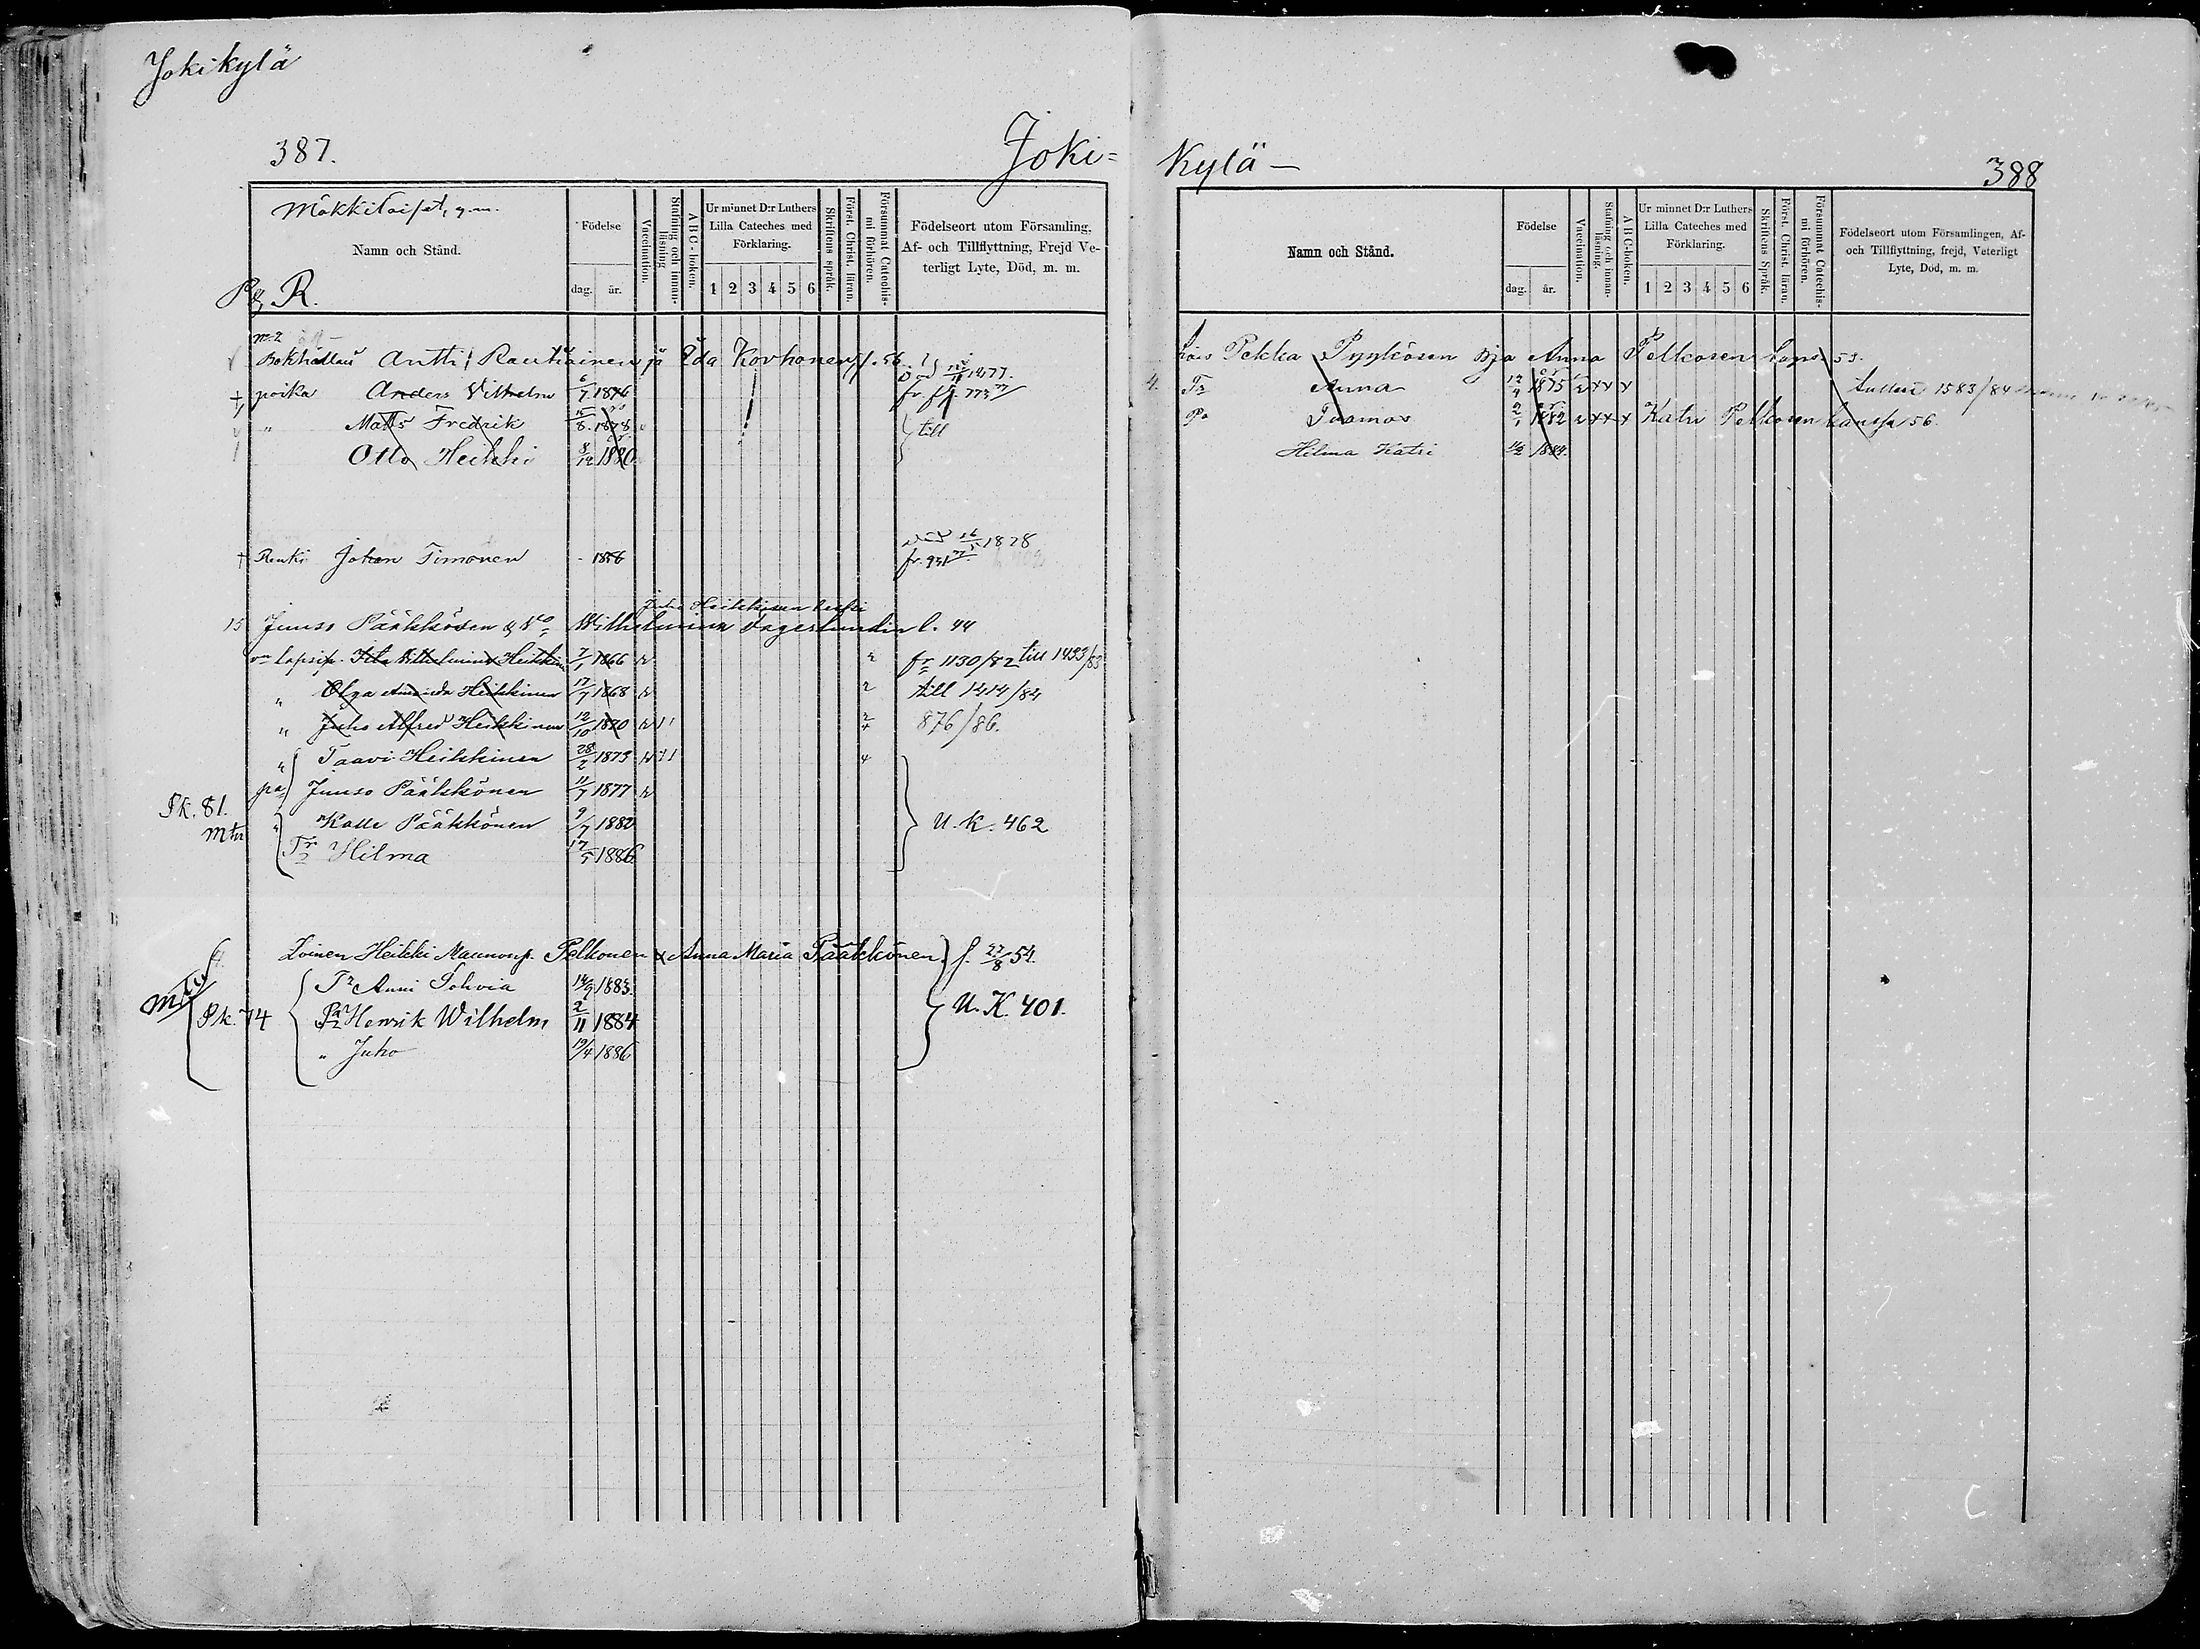 Jokikylä
387.
Joki=
Mökkiloiset, y.m.
Namn och Stånd.
Födelse
dag. år.
Vaccination.
Stafning och innan-läsning
ABC-boken.
Ur minnet D:r Luthers Lilla Cateches med Förklaring.
1 2 3 4 5 6
Skriftens språk.
Först. Christ. läran.
Försummat Catechis-mi förhören.
Födelseort utom Församling, Af- och Tillflyttning, Frejd Veterligt Lyte, Död, m. m.
R.
Antti Rautiainen ja Ida Kovhonen f. 56
+ poika Anders Vilhelm 6/7 1876 fr. 773
" Matts Fredrik 15/8 1878 till
Otto Heikki 8/12 1880
+ Renki Johan Timonen - 1856 1878
Juho Heikkisen leski
15 Juuso Pääkkösen & Vo Wilhelmina Fagerlundin l. 44
lapsip. Ida Vilhelmina Heikkinen 7/1 1866 fr 1130/82 till 1433/83
" Olga Amanda Heikkinen 17/7 1868 2 till 1414/84
" Juho Alfred Heikkinen 12/10 1870 2/4 876/86.
" Taavi Heikkinen 28/2 1873 4
pa Juuso Pääkkönen 11/7 1877
Pk. 81.
" Kalle Pääkkönen 9/7 1882 U.K. 462
mtn
Tr Hilma 17/5 1886
Loinen Heikki Maununp. Pelkonen & Anna Maria Pääkkönen f. 27/8 54.
Tr Anni Sohvia 14/9 1883.
Pk. 74 Pa Henrik Wilhelm 2/11 1884 U.K. 401.
" Juho 19/4 1886
Kylä —
388
Namn och Stånd.
Födelse
dag. år.
Vaccination.
Stafning och innan-läsning.
ABC-boken.
Ur minnet D:r Luthers Lilla Cateches med Förklaring.
1 2 3 4 5 6
Skriftens Språk.
Först. Christ. läran.
Försummat Catechis-mi förhören.
Födelseort utom Församlingen, Af- och Tillflyttning, frejd, Veterligt Lyte, Död, m. m.
Pekka Pyykösen ja Anna Pelkosen laps. 53.
4. Tr Anna 1875 1583/84
Pa Tuomas 2/1 1882 Katri Pelkosen kanssa 56.
Hilma Katri 1884.